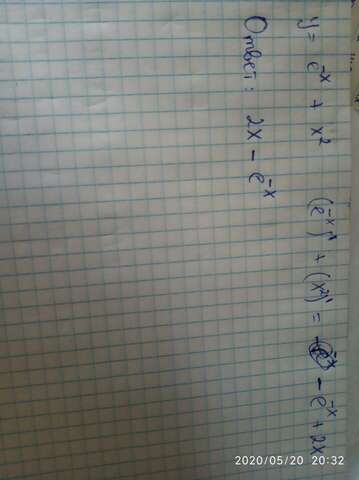 y = e^-x + x^2 (e^-x)' + (x^2)' = - e^-x + 2x
Ответ: 2x - e^-x
2020/05/20 20:32